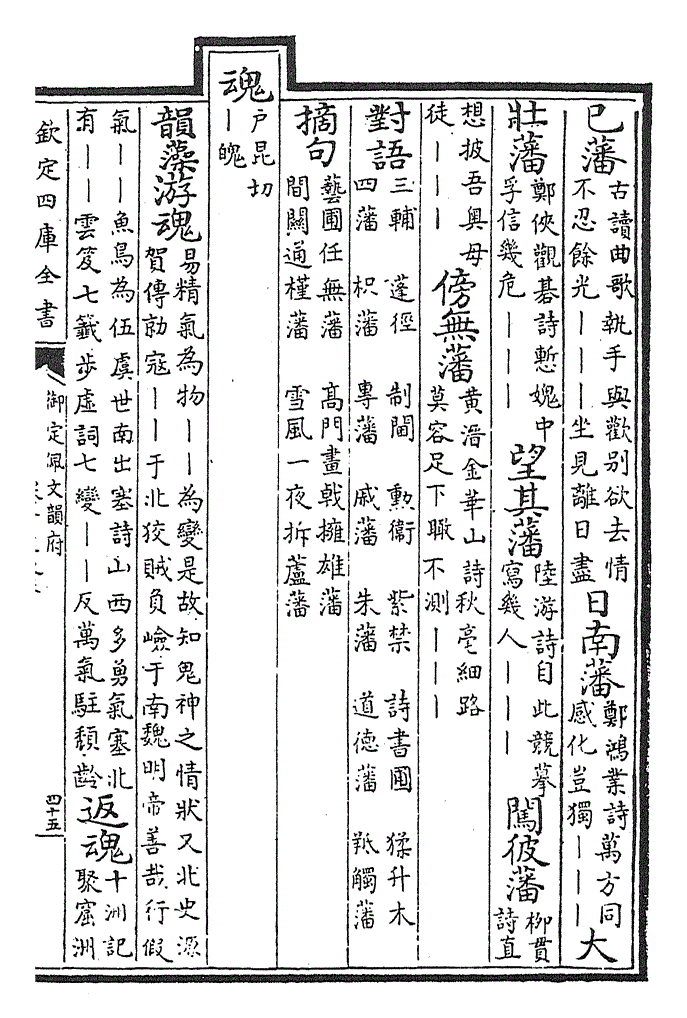 已藩 古讀曲歌執手與歡别欲去情
不忍餘光——坐見離日盡 日南藩 鄭鴻業詩萬方同
感化豈獨——— 大
壯藩 鄭俠觀碁詩慙媿中
孚信幾危———— 望其藩 陸游詩自此競摹
寫幾人——— 闖彼藩 柳貫
詩直
想披吾奥毋
徒——— 傍無藩 黄溍金華山詩秋亳細路
莫容足下瞰不測———
對語 三輔 蓬徑 制閫 勲衛 紫禁 詩書圃 猱升木
四藩 枳藩 專藩 戚藩 朱藩 道德藩 羝觸藩
摘句 藝圃任無藩 高門畫戟擁雄藩
間關通槿藩 雪風一夜拆蘆藩
魂 户昆切
—魄
韻藻 游魂 易精氣為物——為變是故知鬼神之情狀又北史源
賀傳勍寇——于北狡賊負嶮于南魏明帝善哉行假
氣——魚鳥為伍虞世南出塞詩山西多勇氣塞北
有——雲笈七籤步虚詞七變——反萬氣駐頽齡 返魂 十洲記
聚窟洲
欽定四庫全書
御定佩文韻府
四十五